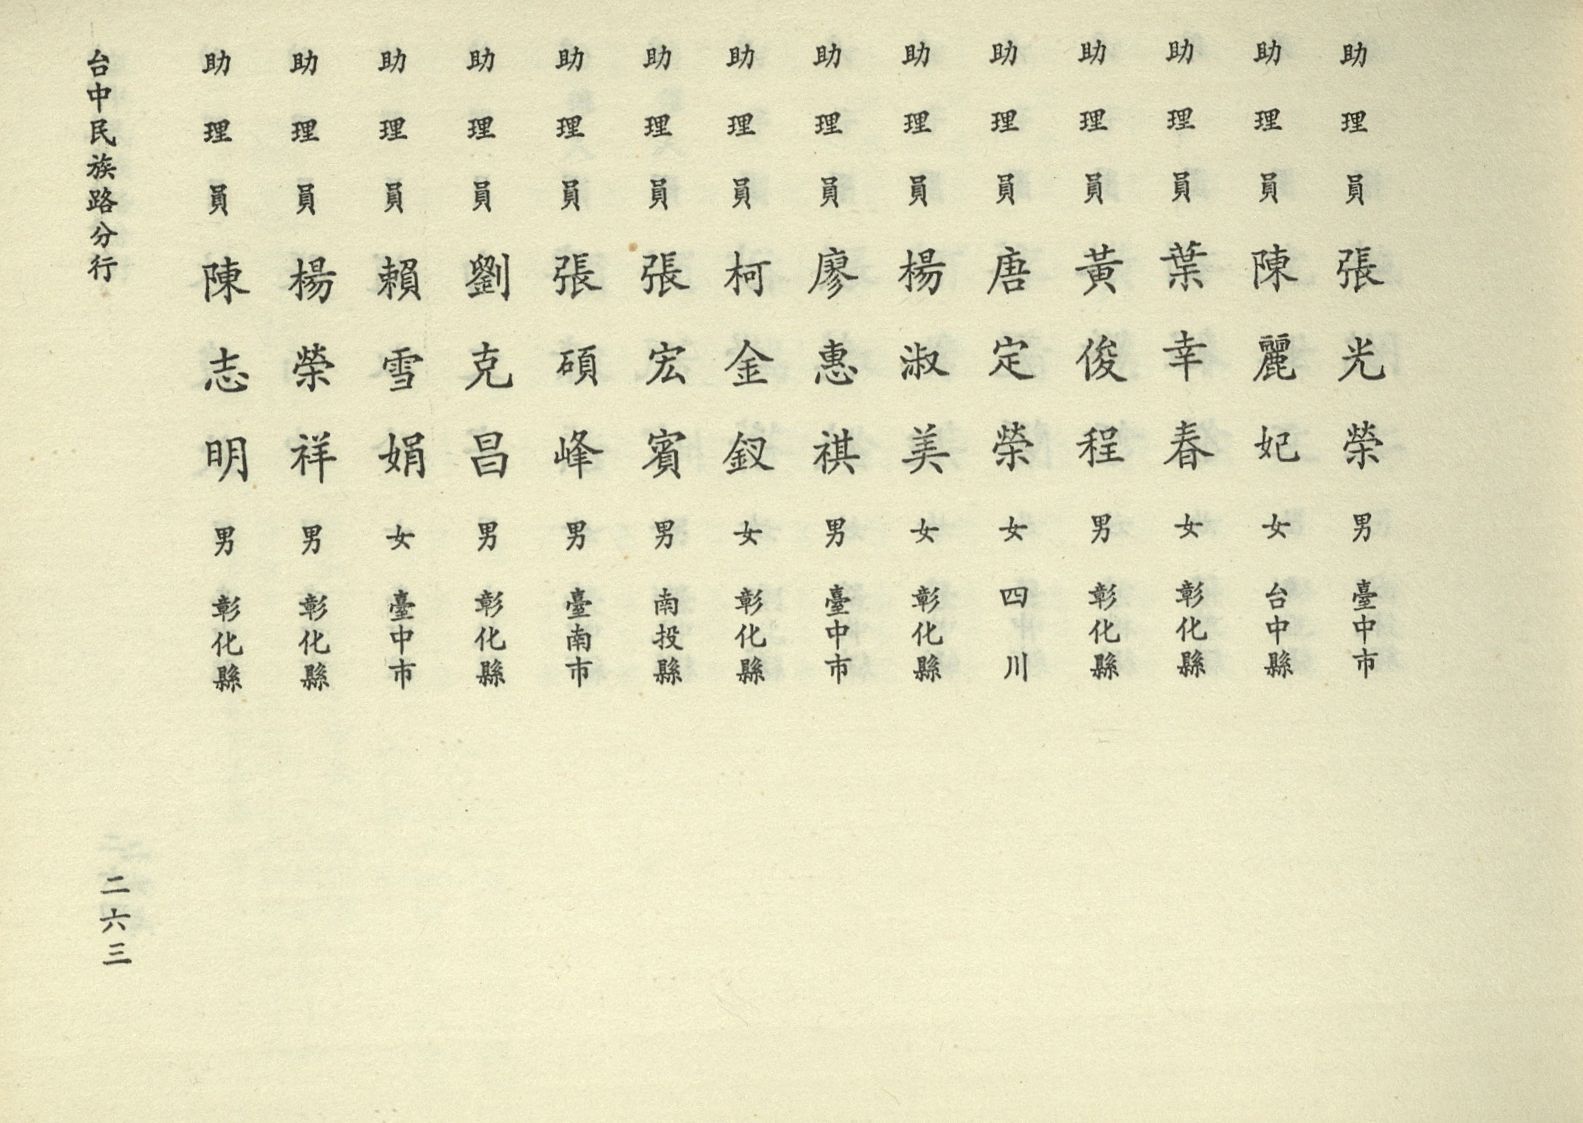 助理員張光榮男臺中市
助理員陳麗妃女台中縣
助理員葉幸春女彰化縣
助理員黃俊程男彰化縣
助理員唐定榮女四川
助理員楊淑美女彰化縣
助理員廖惠祺男臺中市
助理員柯金釵女彰化縣
助理員張宏賓男南投縣
助理員張碩峰男臺南市
助理員劉克昌男彰化縣
助理員賴雪娟女臺中市
助理員楊榮祥男彰化縣
助理員陳志明男彰化縣
台中民族路分行
二六三